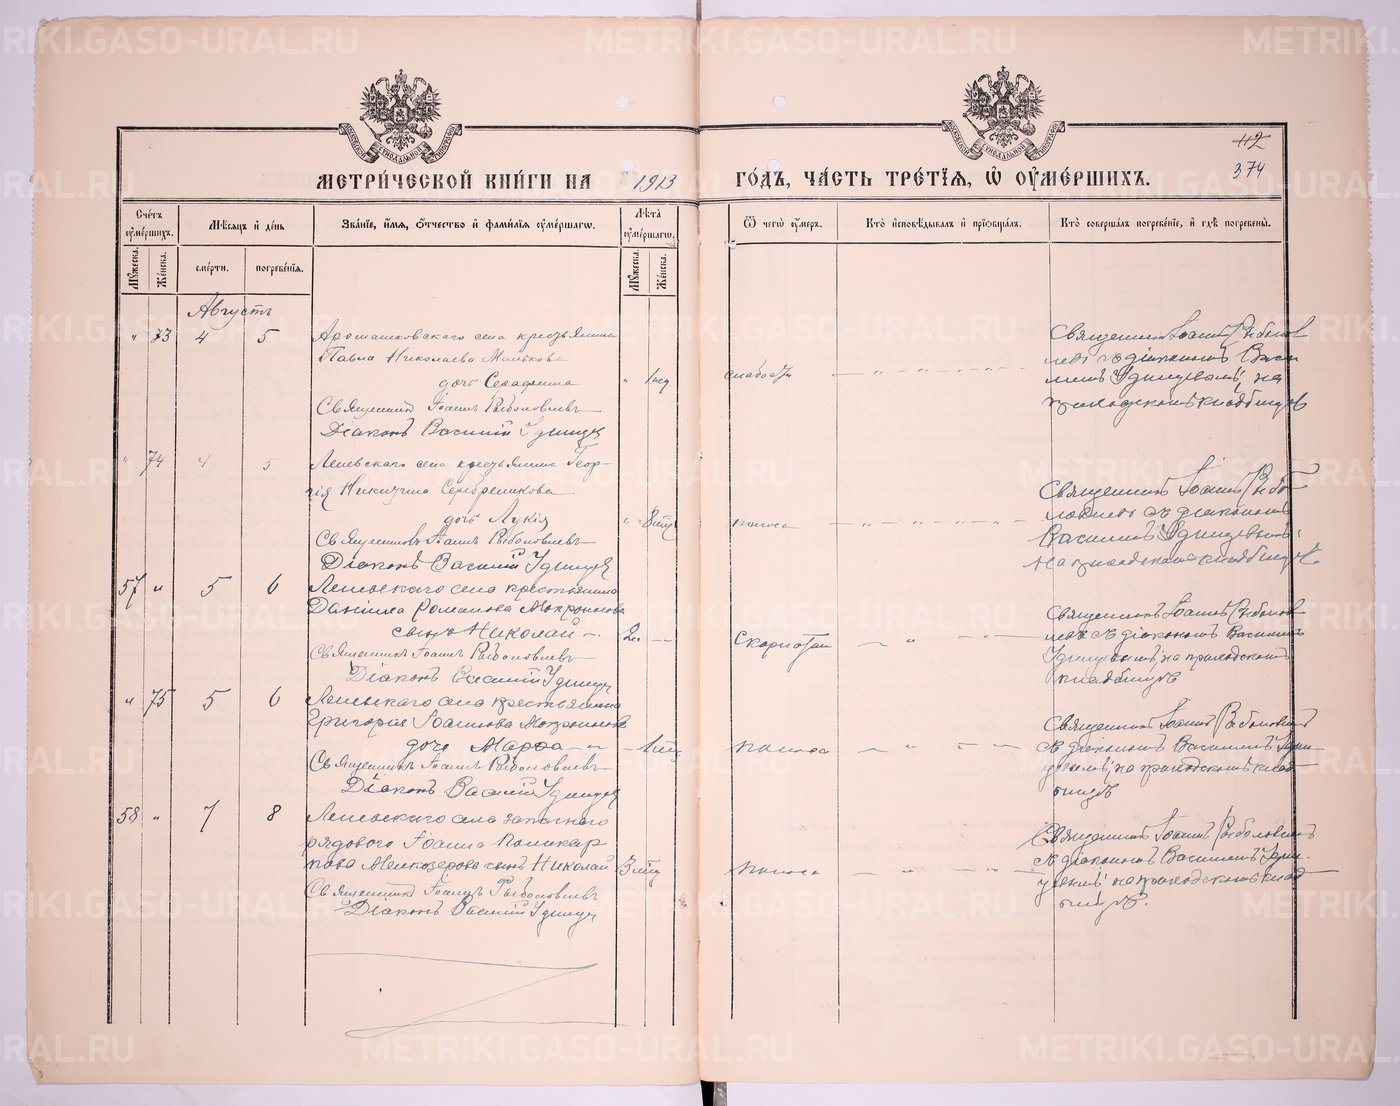 METRIKI.GASO-URAL.RU
МЕТРИ́ЧЕСКОЙ КНИ́ГИ НА 1913 ГО́ДЪ, ЧА́СТЬ ТРЕ́ТІѦ, Ѡ ОУ҆МЕ́РШИХЪ.
112
374
Сче́тъ оу҆ме́ршихъ.
Мꙋ́жеска.
Же́нска.
Мѣ́сѧцъ и҆ де́нь
сме́рти.
погребе́нїѧ.
Зва́нїе, и҆́мѧ, ѻ҆́тчество и҆ фами́лїѧ оу҆ме́ршагѡ.
Лѣ́та оу҆ме́ршагѡ.
Мꙋ́жеска.
Же́нска.
Ѿ чегѡ̀ оу҆́меръ.
Кто̀ и҆сповѣ́дывалъ и҆ прїѡбща́лъ.
Кто̀ соверша́лъ погребе́нїе, и҆ гдѣ̀ погребены̀.
Августъ
" 73 4 5 села крестьянина
Павла Николаева
дочь Серафима " 1 слабости
Священникъ Іоаннъ Рыболовлевъ
Діаконъ Василій Удинцев
Священникъ Іоаннъ Рыболов
левъ съ діакономъ Васи
ліемъ Удинцевымъ, на
приходскомъ кладбищѣ
" 74 4 5 села крестьянина Геор-
гія Никитина Серебреникова
дочь Лукія " 8 поноса
Священникъ Іоаннъ Рыболовлевъ
Діаконъ Василій Удинцев
Священникъ Іоаннъ Рыбо
ловлевъ съ діакономъ
Василіемъ Удинцевымъ,
на приходскомъ кладбищѣ.
57 " 5 6 села крестьянина
Даніила Романова Мокроносова
сынъ Николай 2
Священникъ Іоаннъ Рыболовлевъ
Діаконъ Василій Удинцев
Священникъ Іоаннъ Рыболов
левъ съ діакономъ Василіемъ
Удинцевымъ, на приходскомъ
кладбищѣ
" 75 5 6 села крестьянина
Григорія Іоаннова Мокроносова
дочь Марѳа 1 поноса
Священникъ Іоаннъ Рыболовлевъ
Діаконъ Василій Удинцев
Священникъ Іоаннъ Рыболовлевъ
съ діакономъ Василіемъ Удин-
цевымъ, на приходскомъ клад-
бищѣ
58 " 7 8 села запаснаго
рядового Іоанна Поликар
пова Мелкозерова сынъ Николай 3 поноса
Священникъ Іоаннъ Рыболовлевъ
Діаконъ Василій Удинцев
Священникъ Іоаннъ Рыболовлевъ
съ діакономъ Василіемъ Удин-
цевымъ, на приходскомъ клад-
бищѣ.